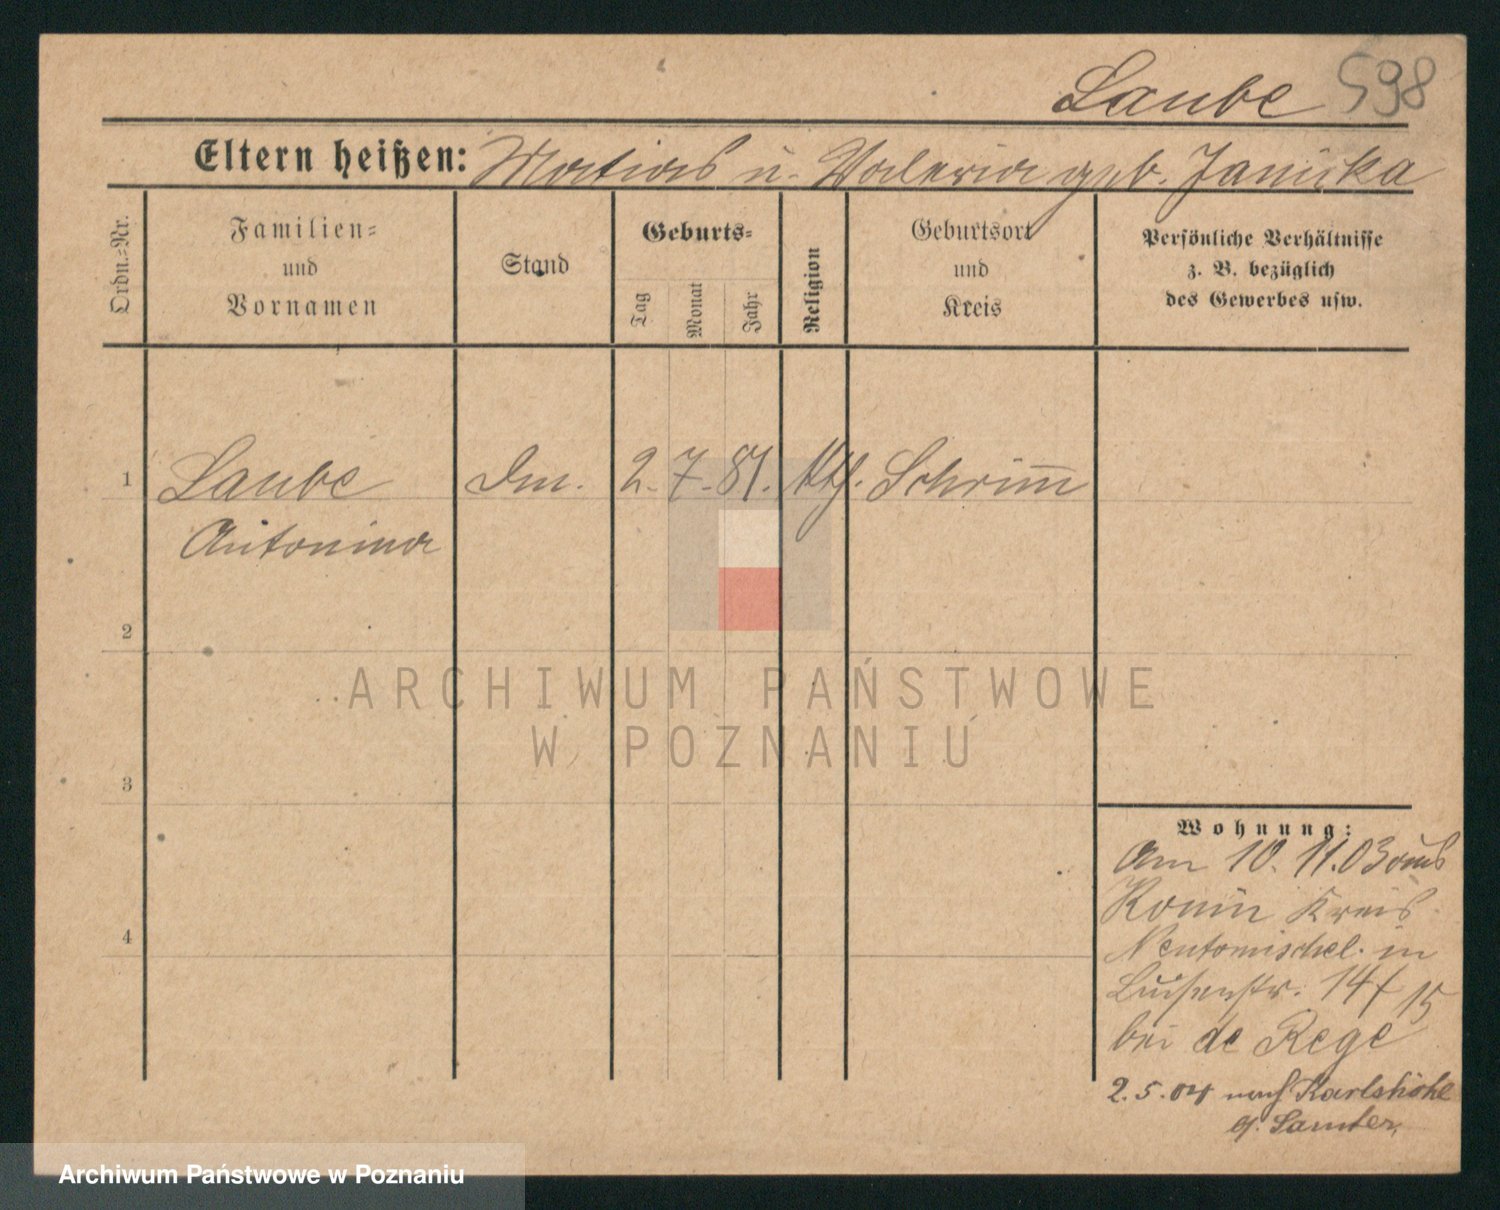 Laube 598
Eltern heißen: Matias u. Valeria geb. Janicka
Ordn.-Nr.
Familien-
und
Vornamen
Stand
Geburts-
Tag
Monat
Jahr
Religion
Geburtsort
und
Kreis
Persönliche Verhältnisse
z. B. bezüglich
des Gewerbes usw.
1 Laube Dm. 2. 7. 81. kth. Schrimm
Antonina
2
3
4
Wohnung:
Am 10. 11. 03 aus
Konin Kreis
Neutomischel. in
Luisenstr. 14/15
bei de Rege
2. 5. 04 nach Karlshöhe
Samter
ARCHIWUM PAŃSTWOWE
W POZNANIU
Archiwum Państwowe w Poznaniu